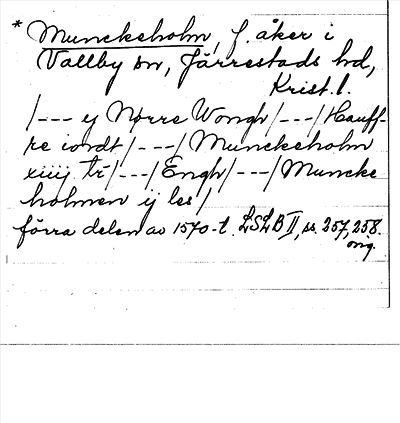 * Munckeholm, f. åker i
Vallby sn, Järrestads hd,
Krist. l.
/--- ij Nørre Wongh /---/ Hauff-
re iordt /---/ Munckeholm
xiiij tr /---/ Engh /---/ Muncke
holmen ij les /
förra delen av 1570-t. LSLB II, ss. 257, 258.
orig.